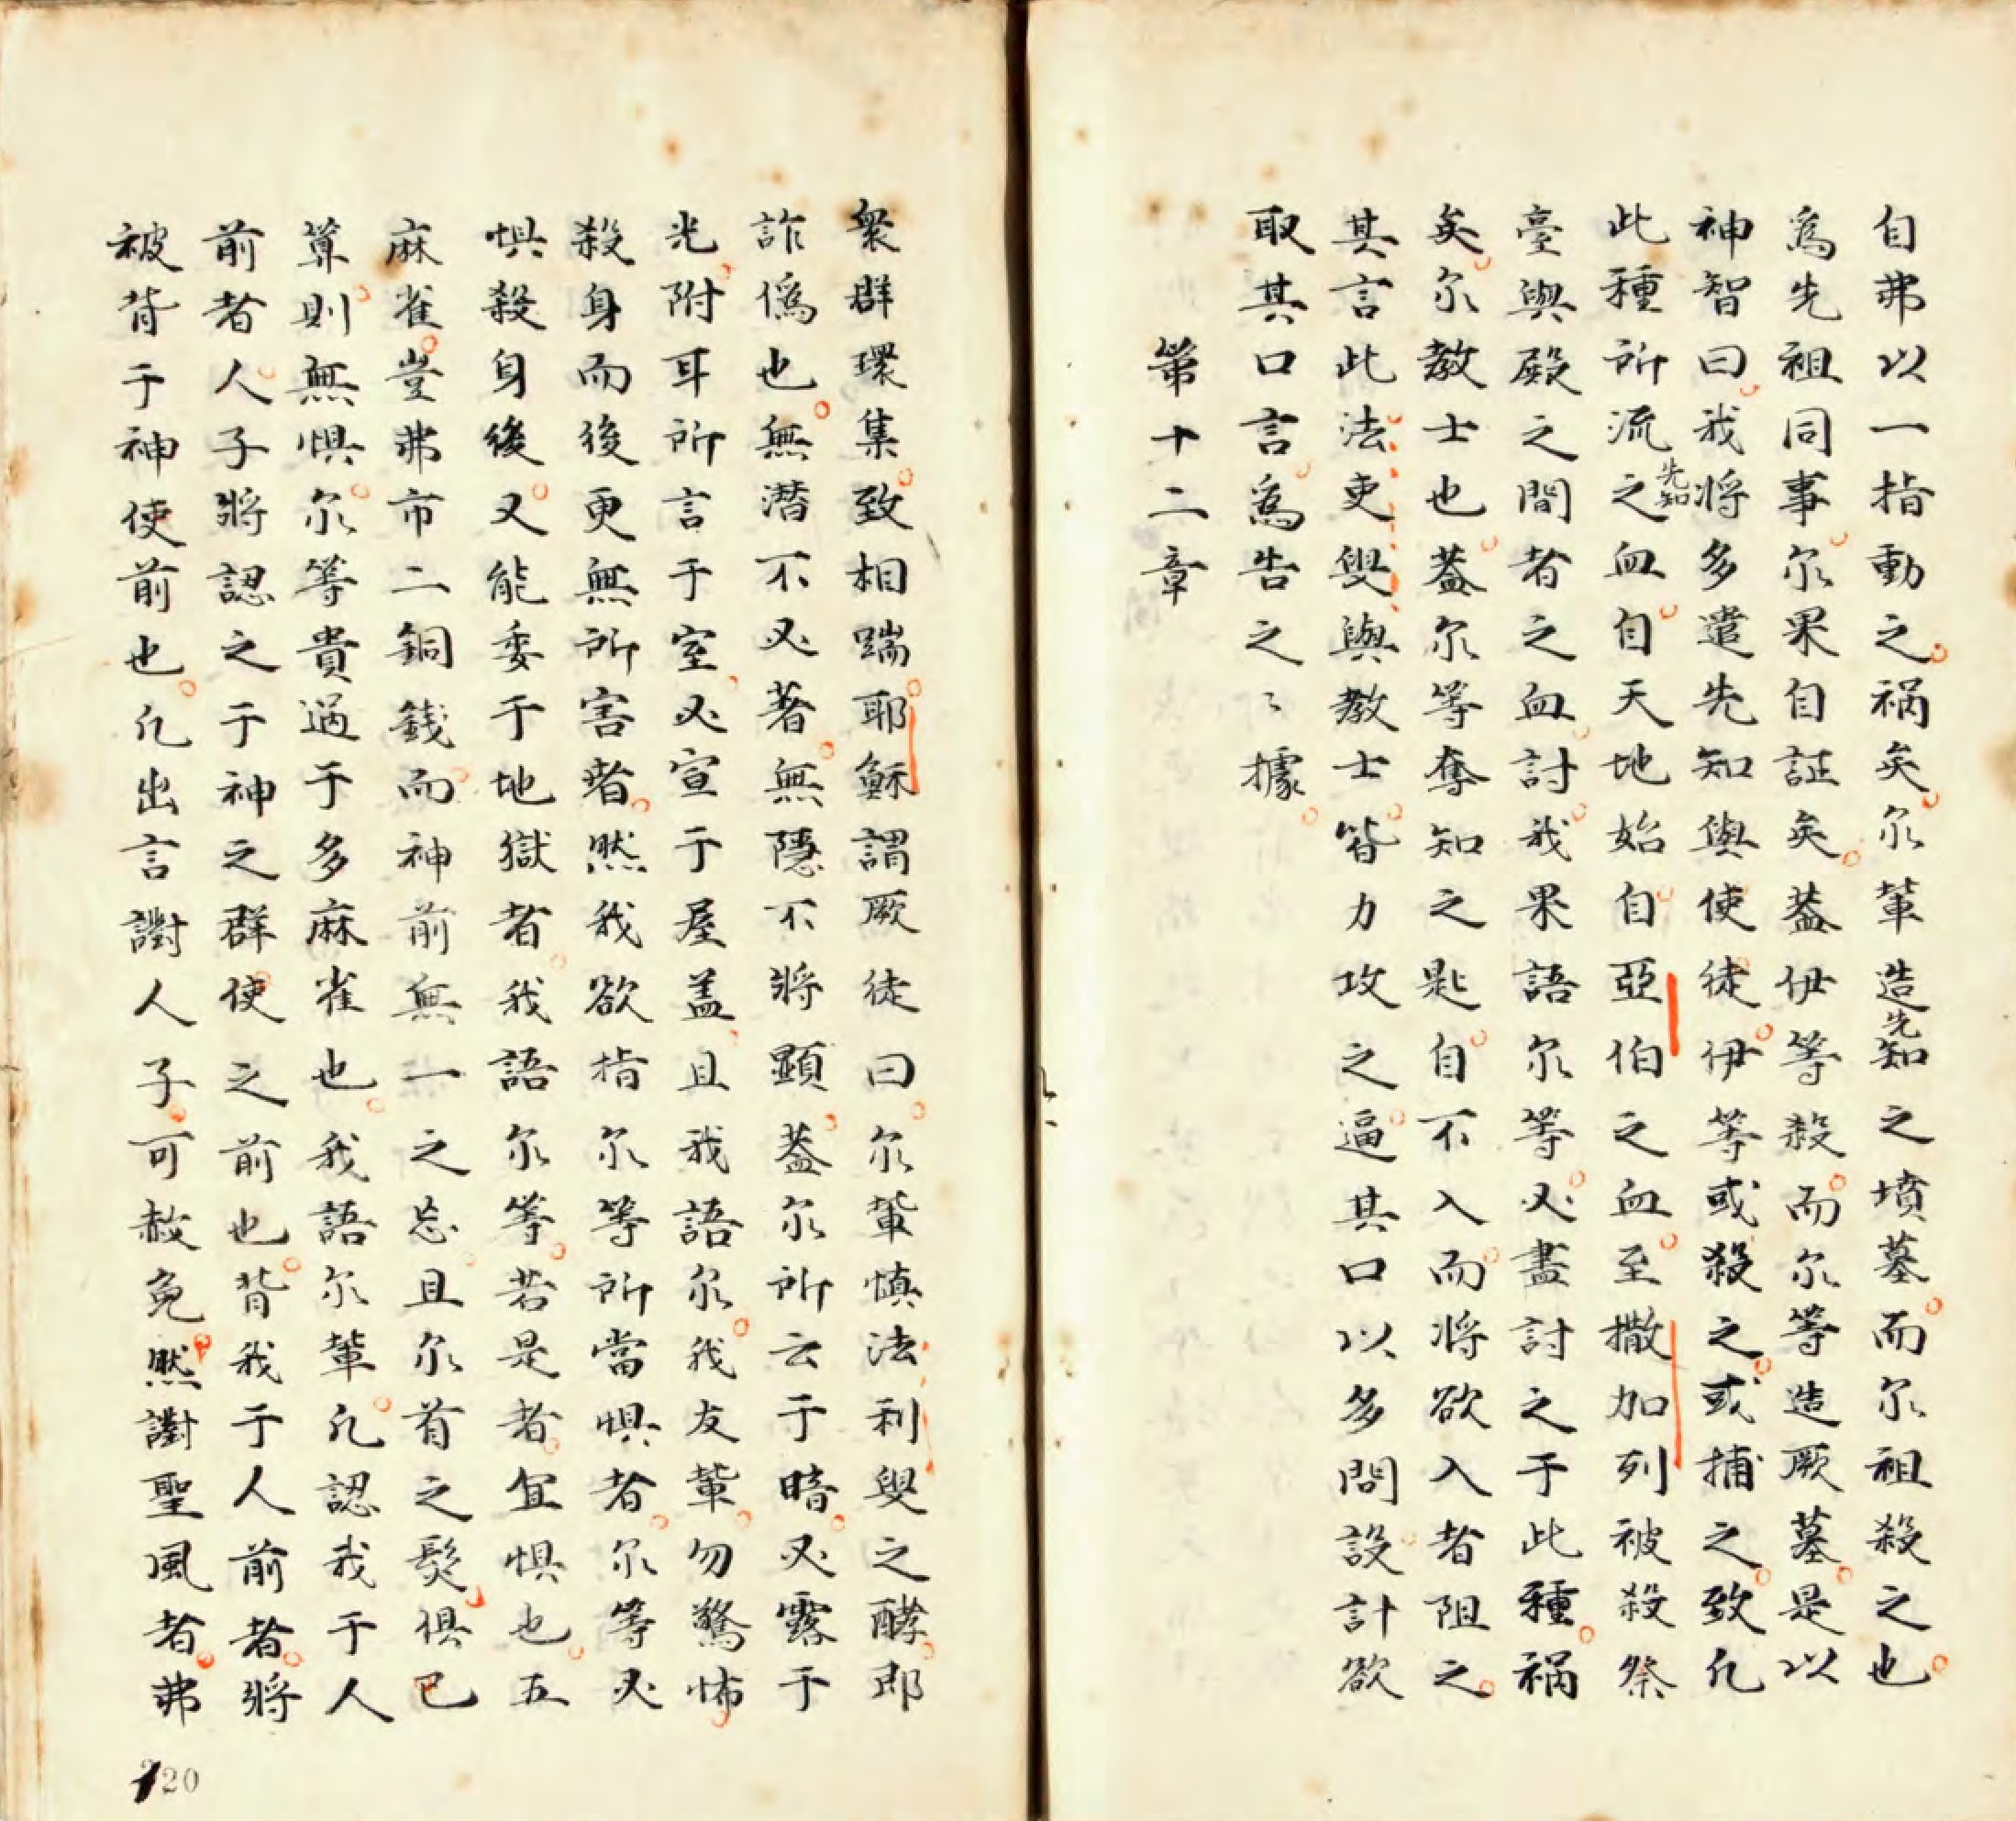 自弗以一指動之祸矣尔輩造先知之墳墓而尔祖殺之也
為先祖同事尔果自証矣葢伊等殺而尔等造厥墓是以
神智曰我將多遣先知與使徒伊等或殺之或捕之致凡
此種所流之先知血自自天地始自亞伯之血至撒加列被殺祭
臺與殿之間者之血討我果語尔等必盡討之于此種祸
矣尔教士也葢尔等奪知之匙自不入而将欲入者阻之
其言此法吏與與教士皆力攻之逼其口以多問設計欲
取其口言為告之之據
第十二章
衆群環集致相踹耶穌謂厥徒曰尔輩慎法利叟之酵即
詐僞也無潛不必著無隱不將顯葢尔所云于暗必露于
光附耳所言于室必宣于屋盖且我語尔我友輩勿驚怖
殺身而後更無所害者然我欲指尔等所當惧者尔等必
惧殺身後又能委于地獄者我語尔等若是者宜惧也五
麻雀豈弗市二銅錢而神前無一之忘且尔首之髮俱已
算則無惧尔等貴過于多麻雀也我語尔輩凡認我于人
前者人子將認之于神之群使之前也背我于人前者將
被背于神使前也凡出言讟人子可赦免然讟聖風者弗
20